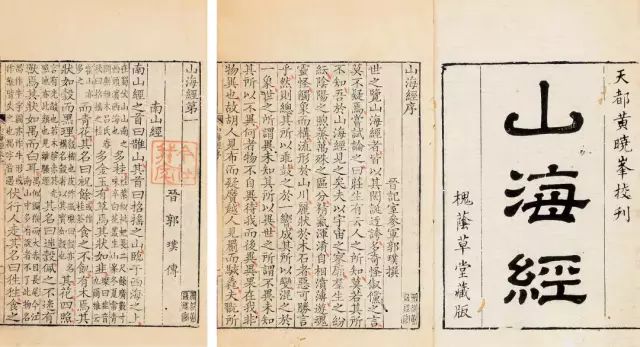 天都黃曉峯挍刊
山海經
槐蔭草堂藏版
山海經序
晉記室參軍郭璞撰
世之覽山海經者皆以其閎誕迂誇多奇怪俶儻之言
莫不疑焉嘗試論之曰莊生有云人之所知莫若其所
不知吾於山海經見之矣夫以宇宙之寥廓羣生之紛
紜陰陽之煦蒸萬殊之區分精氣渾淆自相濆薄遊魂
靈怪觸象而構流形於山川麗狀於木石者惡可勝言
乎然則總其所以乖鼓之於一響成其所以變混之於
一象世之所謂異未知其所以異世之所謂不異未知
其所以不異何者物不自異待我而後異異果在我非
物異也故胡人見布而疑黂越人見罽而駭毳夫翫所
山海經第一
晉郭璞傳
南山經
南山經之首曰䧿山其首曰招搖之山臨于西海之上
多桂多金玉有草焉其狀如韭
而青花其名曰祝餘食之不飢有木焉其
狀如榖而黑理其花四照
其名曰迷榖佩之不迷有
獸焉其狀如禺而白耳
伏行人走其名曰狌狌食之